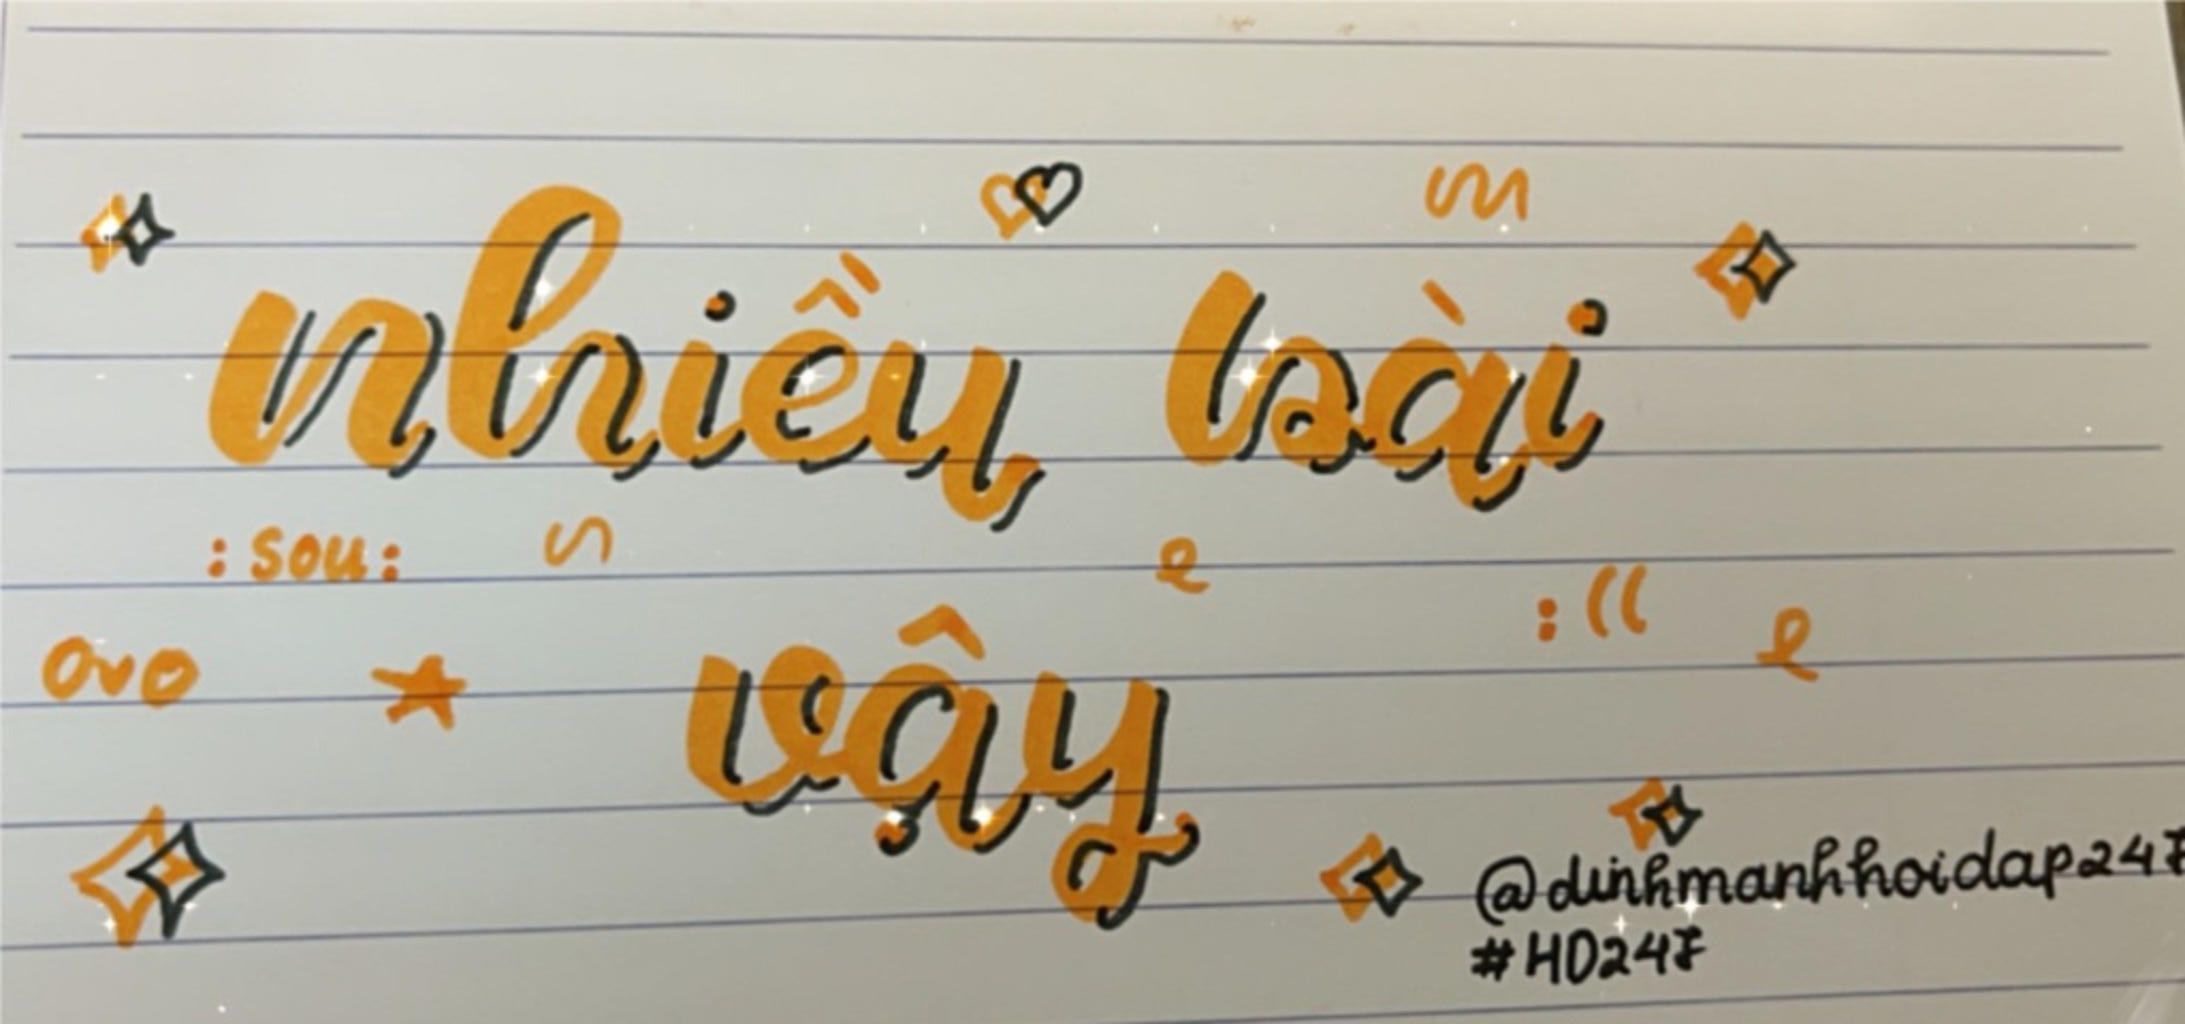 nhiều bài
:sou:
:((
ovo
vậy
@dinhmanhhoidap247
#HD247